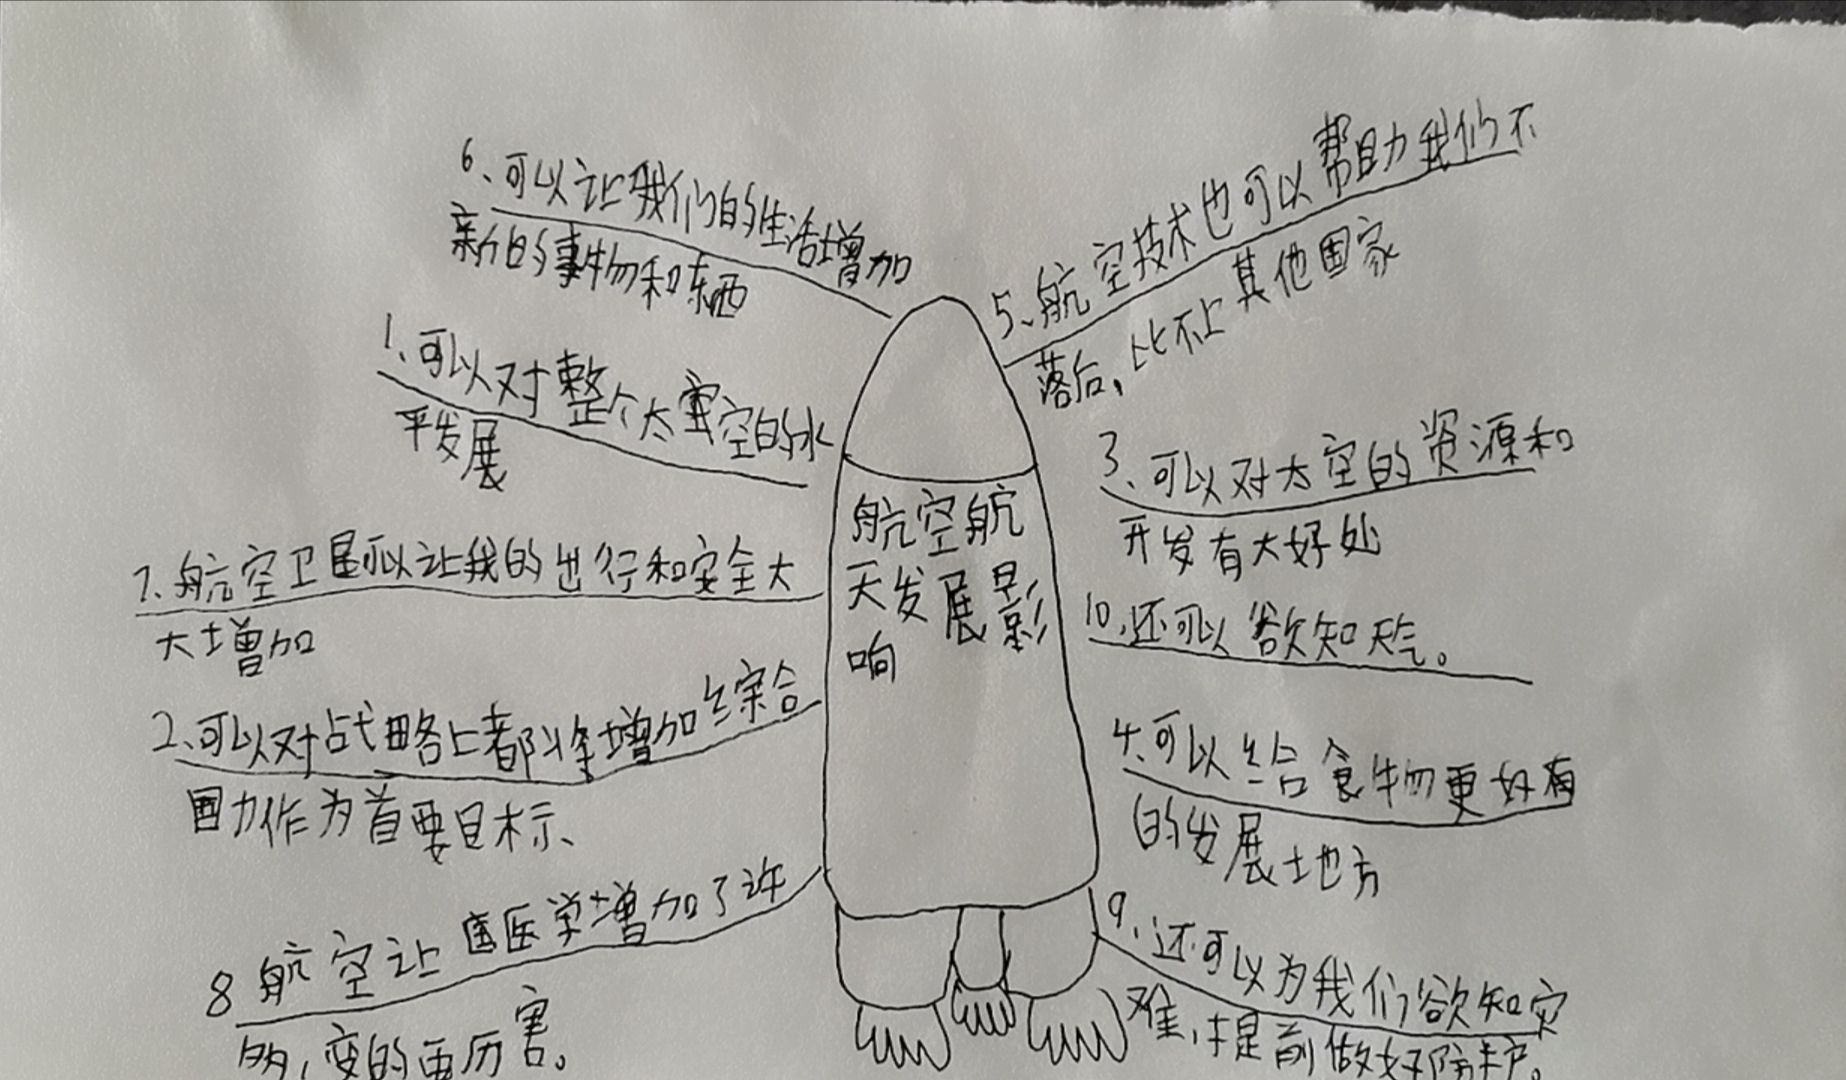 6、可以让我们的生活增加
新的事物和东西
1、可以对整个太空的水
平发展
7.航空卫星可以让我的出行和安全大
大增加
2、可以对战略上都将增加综合
国力作为首要目标、
8航空让医学增加了许
多,变的更厉害。
航空航
天发展影
响
5、航空技术也可以帮助我们不
落后,比不上其他国家
3、可以对太空的资源和
开发有大好处
10、还可以欲知天气。
4、可以给食物更好有
的发展土地方
9、还可以为我们欲知灾
难,提前做好防护。